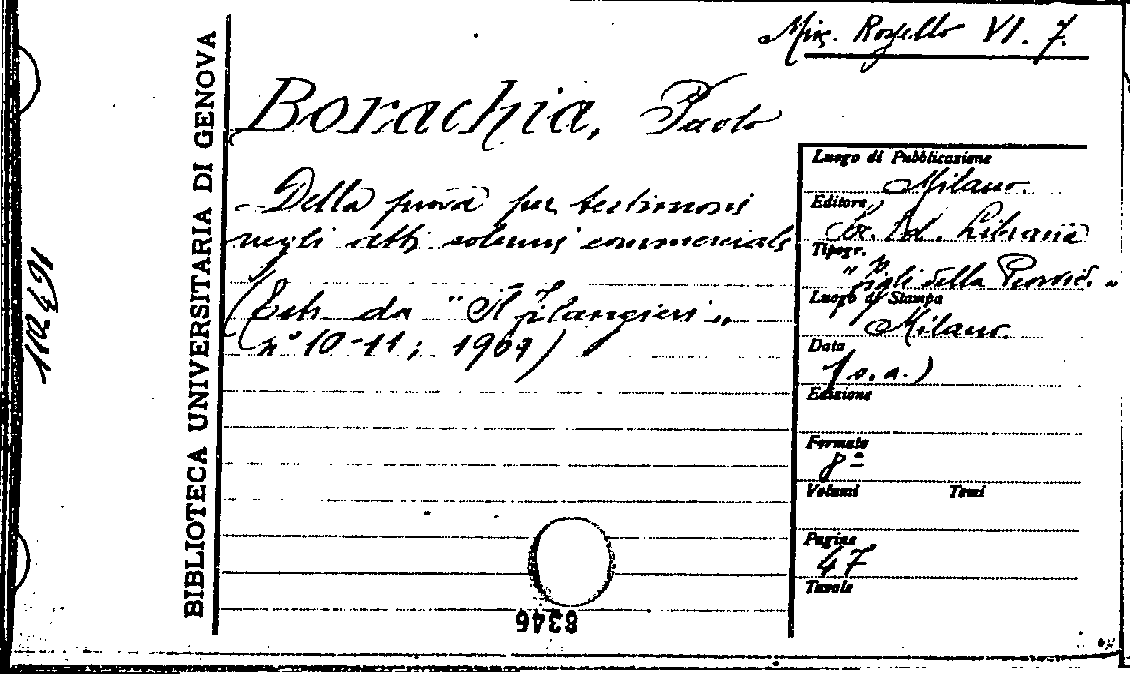 Misc. Rossello VI. 7.
BIBLIOTECA UNIVERSITARIA DI GENOVA
Borachia, Paolo
Della prova per testimoni
negli atti solenni commerciali
(Estr. da "Il Filangieri",
n° 10-11; 1909)
Luogo di Pubblicazione
Milano.
Editore
Soc. Ed. Libraria
Tipogr.
"figli della Provvid."
Luogo di Stampa
Milano.
Data
(s.a.)
Edizione
Formato
8°
Volumi Tomi
Pagine
47
Tavole
8346